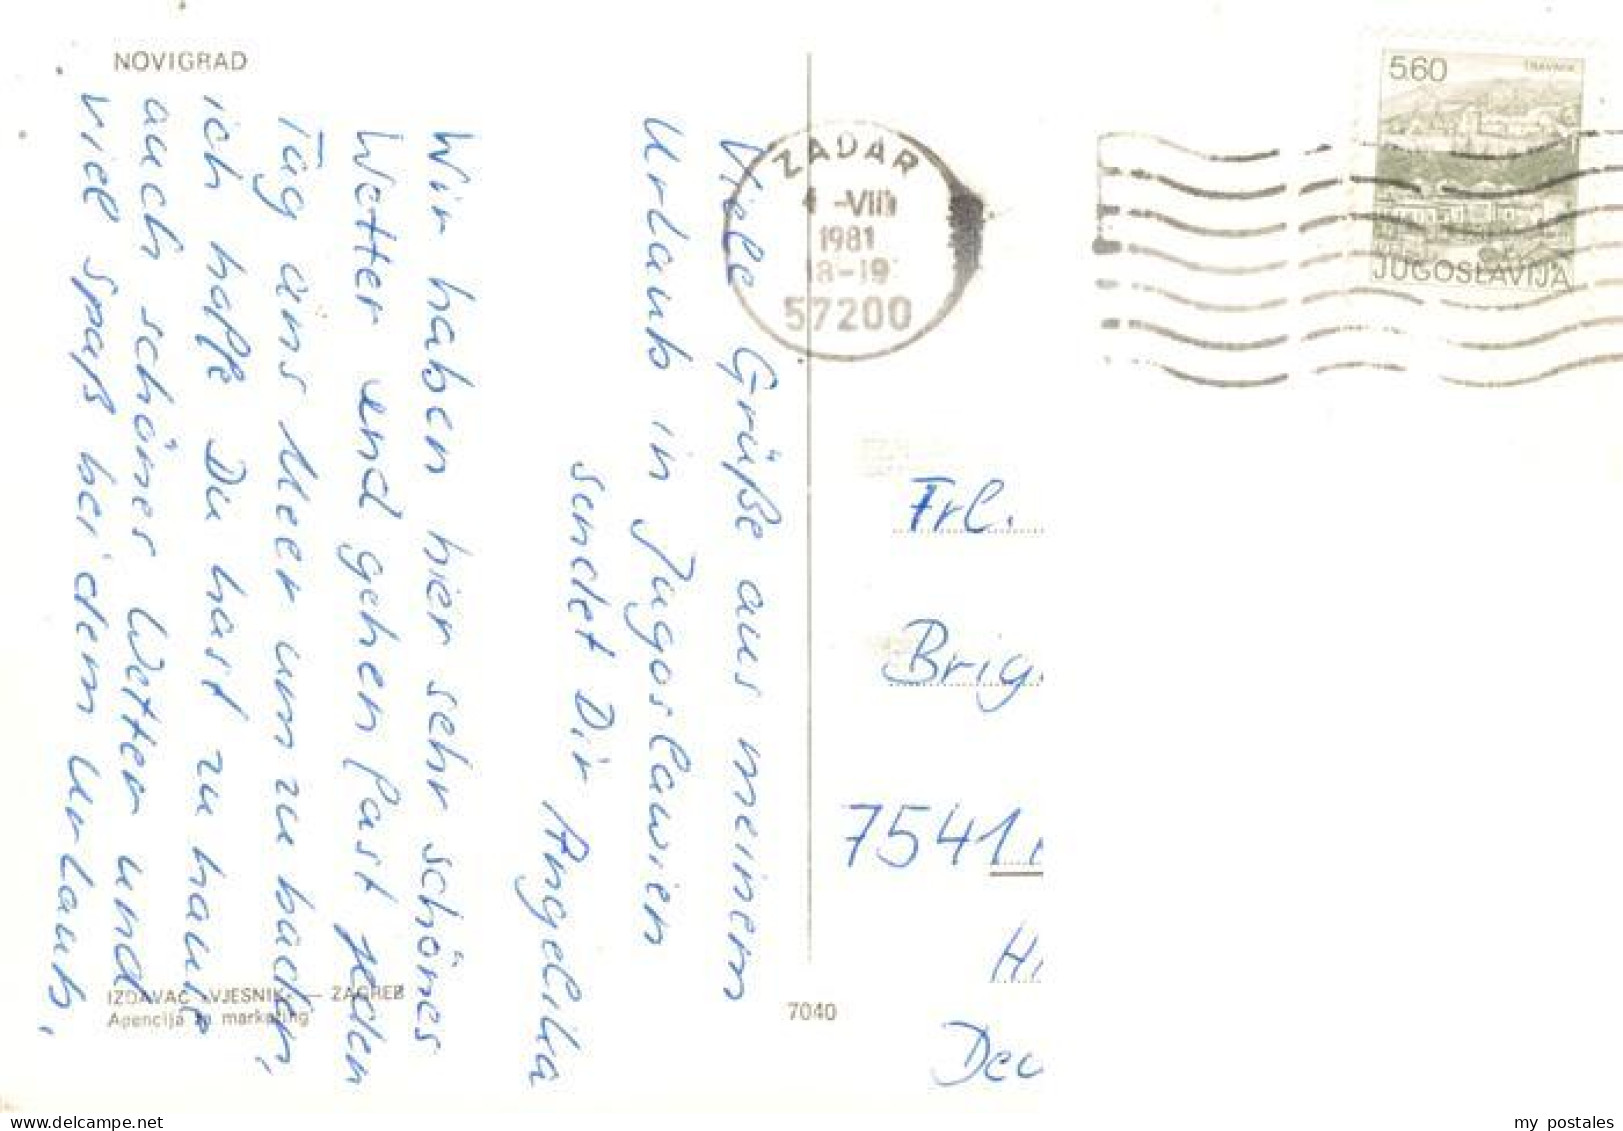 NOVIGRAD
Viele Grüße aus meinem
Urlaub in Jugoslawien
sendet Dir Angelika
Wir haben hier sehr schönes
Wetter und gehen fast jeden
Tag ans Meer um zu baden,
ich hoffe Du hast zu hause
auch schönes Wetter und
viel spaß bei dem Urlaub.
IZDAVAČ »VJESNIK« — ZAGREB
Agencija za marketing
7040
ZADAR
4 -VIII
1981
18-19
57200
5.60
TRAVNIK
JUGOSLAVIJA
Frl.
Brig.
7541
H
Deu
www.delcampe.net
my_postales